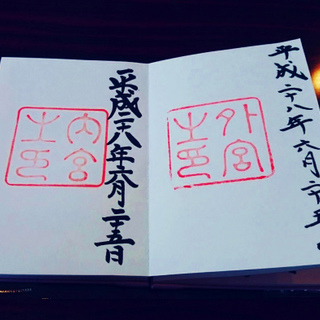 平成二十八年六月二十五日
外宮之印
平成二十八年六月二十五日
内宮之印